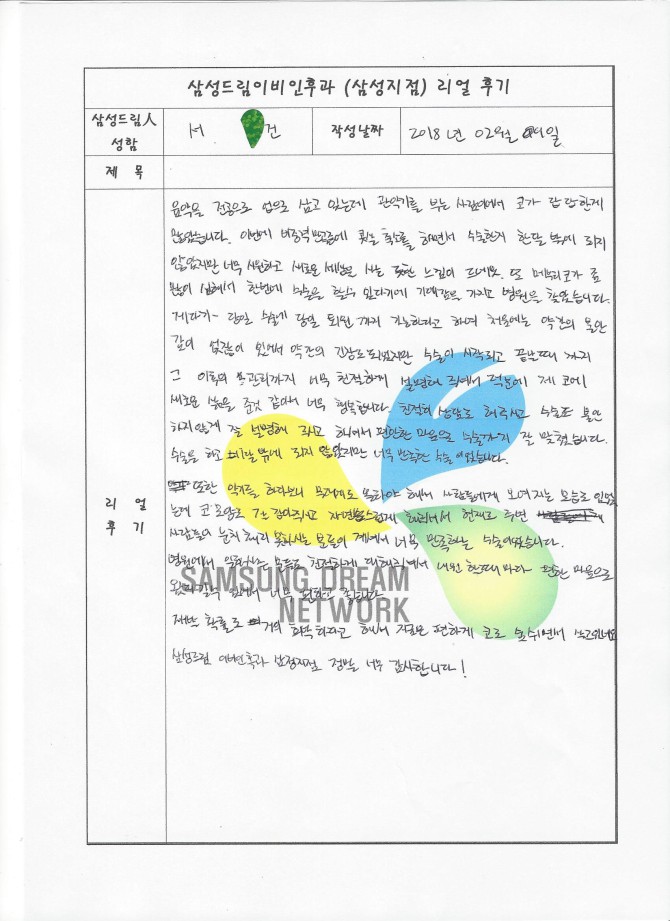 삼성드림이비인후과 (삼성지점) 리얼 후기
삼성드림人 성함
서 건
작성날짜
2018년 02월 일
제 목
리 얼 후 기
음악을 전공으로 업으로 삼고 있는데 관악기를 부는 사람에게서 코가 답답한게
많았습니다. 이번에 비중격만곡증에 축농증 하면서 수술한지 한달 밖에 되지
않았지만 너무 시원하고 새로운 세상을 사는 듯한 느낌이 드네요. 또 매부리코가 좀
많이 심해서 한번에 수술을 할수 있다기에 기대감을 가지고 병원을 찾았습니다.
게다가 당일 수술에 당일 퇴원까지 가능하다고 하여 처음에는 약간의 불안
감이 없잖아 있어서 약간의 긴장도 되었지만 수술이 시작되고 끝날때 까지
그 이후의 관리까지 너무 친절하게 설명해 주셔서 덕분에 제 코에
새로운 삶을 준것 같아서 너무 행복합니다. 친절히 상담도 해주시고 수술도 불안
하지않게 잘 설명해 주시고 하셔서 편안한 마음으로 수술까지 잘 마쳤습니다.
수술을 하고 한달 밖에 되지 않았지만 너무 만족한 수술이었습니다.
또한 악기를 하다보니 무대에도 올라야 해서 사람들에게 보여지는 모습도 있었
는데 코 모양도 잡아주시고 자연스럽게 해주셔서
사람들의 눈치 너무 만족하는 수술이었습니다.
병원에서 모든분들 친절하게 대해주셔서 내원 할때마다 편한 마음으로
너무 편하고 좋습니다
재발 확률도 거의 희박하다고 해서 지금은 편하게 코로 숨쉬면서
삼성드림 이비인후과 삼성지점 정말 너무 감사합니다!
SAMSUNG DREAM
NETWORK